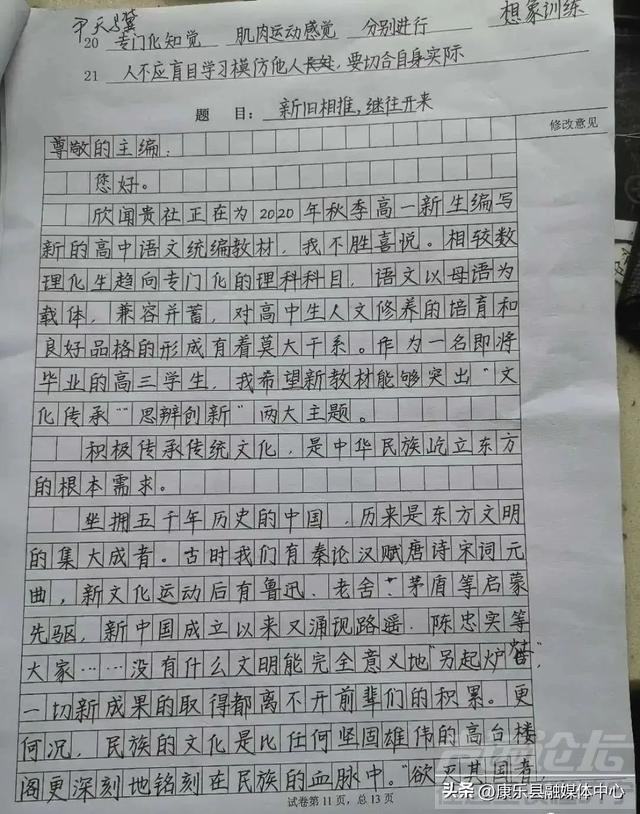 尹天翼
想象训练
20 专门化知觉 肌肉运动感觉 分别进行
21 人不应盲目学习模仿他人长处,要切合自身实际
题 目: 新旧相推,继往开来
修改意见
尊敬的主编:
您好。
欣闻贵社正在为2020年秋季高一新生编写
新的高中语文统编教材,我不胜喜悦。相较数
理化生趋向专门化的理科科目,语文以母语为
载体,兼容并蓄,对高中生人文修养的培育和
良好品格的形成有着莫大干系。作为一名即将
毕业的高三学生,我希望新教材能够突出“文
化传承”“思辨创新”两大主题。
积极传承传统文化,是中华民族屹立东方
的根本需求。
坐拥五千年历史的中国,历来是东方文明
的集大成者。古时我们有秦论汉赋唐诗宋词元
曲,新文化运动后有鲁迅、老舍、茅盾等启蒙
先驱,新中国成立以来又涌现路遥、陈忠实等
大家……没有什么文明能完全意义地“另起炉灶”,
一切新成果的取得都离不开前辈们的积累。更
何况,民族的文化是比任何坚固雄伟的高台楼
阁更深刻地铭刻在民族的血脉中。“欲灭其国者,
试卷第11页,总13页
头条 @康乐县融媒体中心